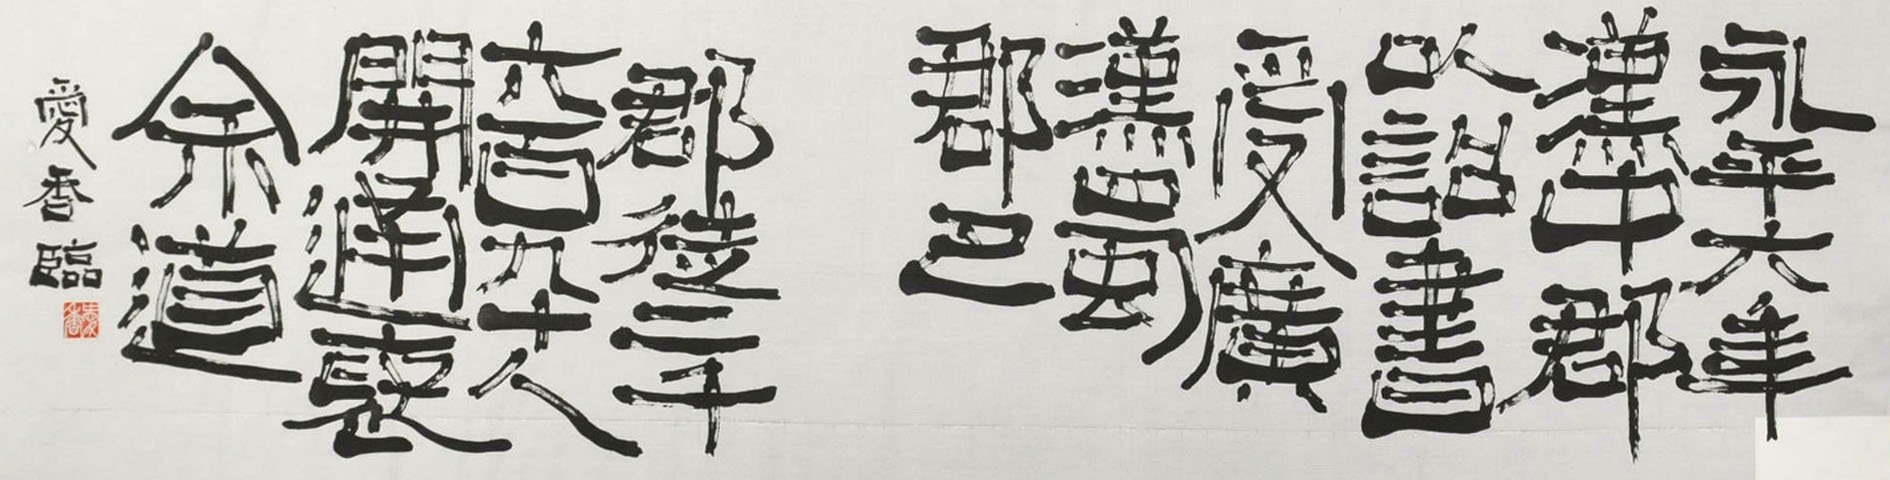 永平六年
漢中郡
以詔書
受廣
漢蜀
郡巴
郡徒二千
六百九十人
開通褒
余道
愛香臨
愛香